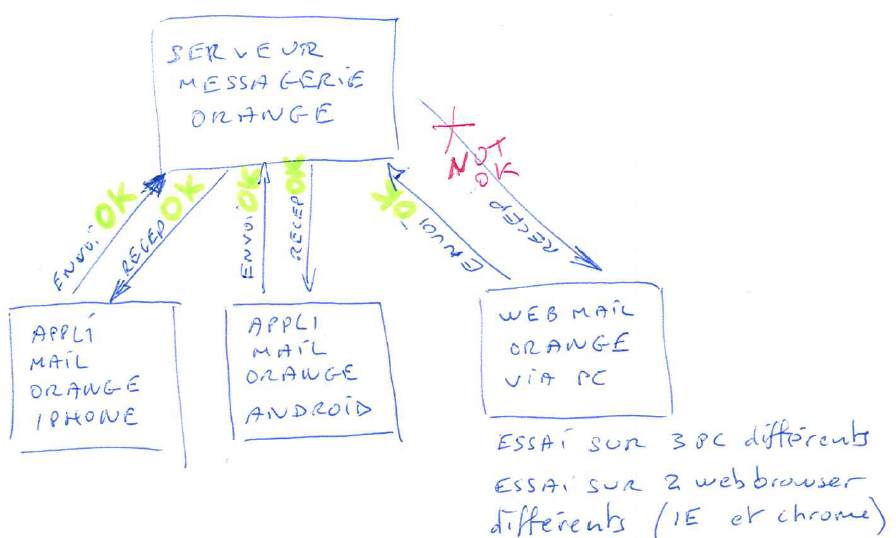 SERVEUR
MESSAGERIE
ORANGE
NOT
OK
ENVOI OK
RECEP OK
ENVOI OK
RECEP OK
ENVOI OK
RECEP
APPLI
MAIL
ORANGE
IPHONE
APPLI
MAIL
ORANGE
ANDROID
WEBMAIL
ORANGE
VIA PC
ESSAI SUR 3 PC différents
ESSAI SUR 2 webbrowser
différents (IE et chrome)